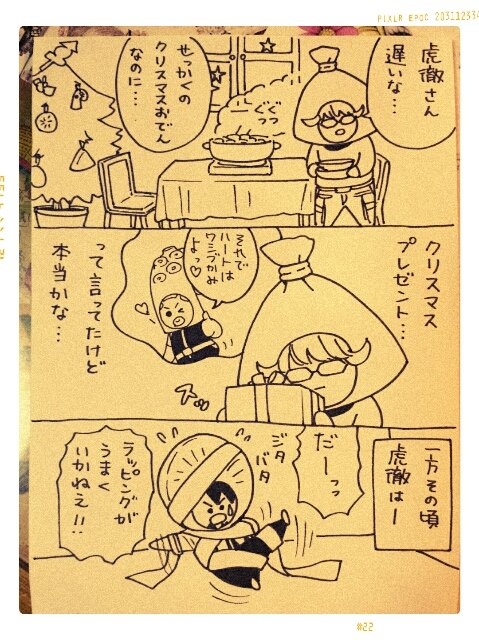 PIXLR EPOC 20311233
虎徹さん
遅いな…
せっかくの
クリスマスおでん
なのに…
ぐっ
ぐつ
クリスマス
プレゼント…
それで
ハートは
ワシづかみ
よっ♡
って言ってたけど
本当かな…
ズッ
一方その頃
虎徹はー
だーっっ
ジタ
バタ
ラッピングが
うまく
いかねえ!!
#22